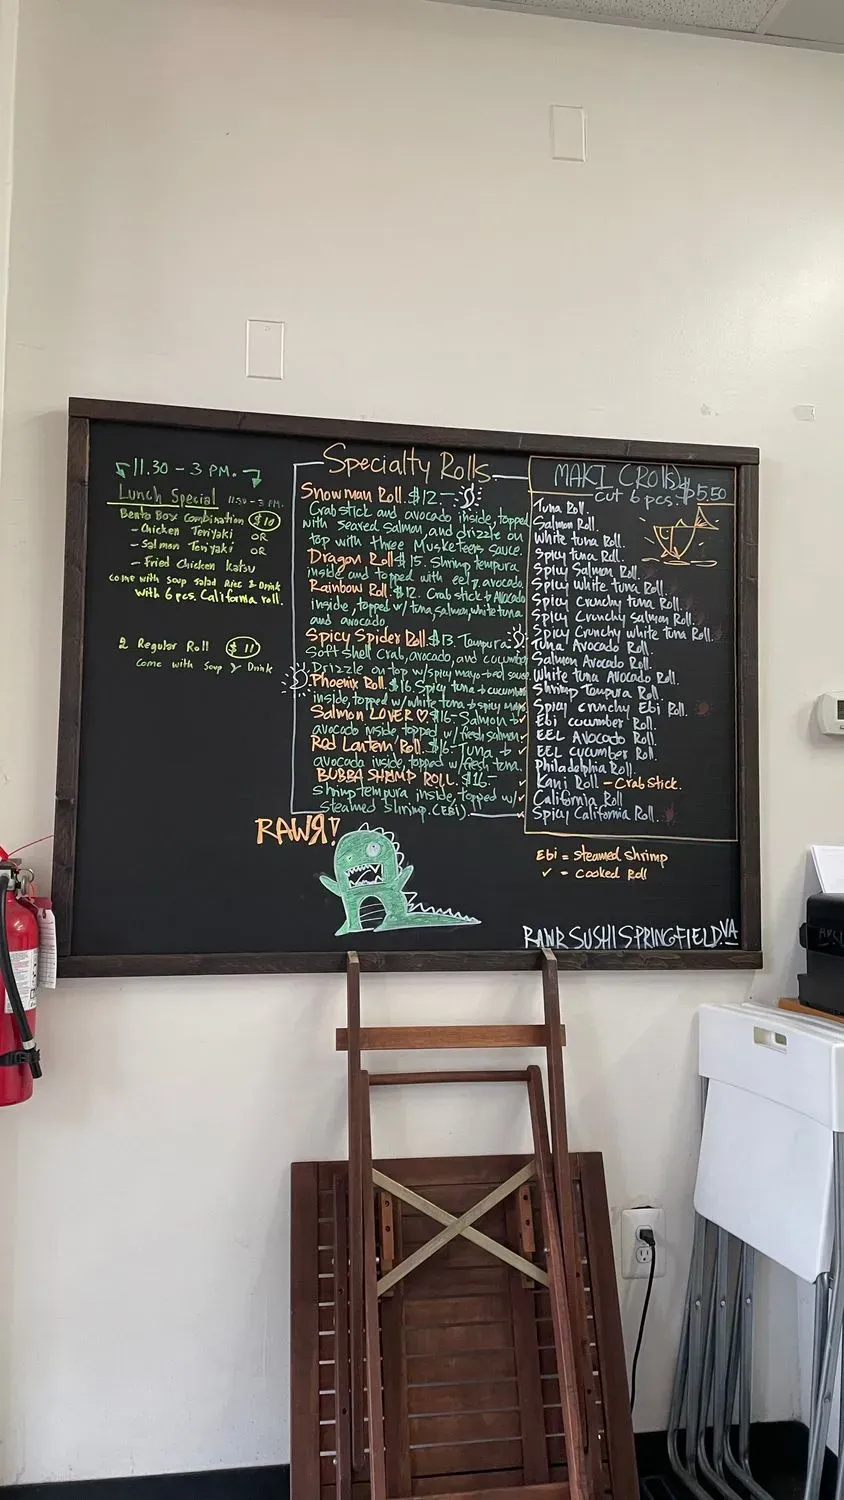 11.30 - 3 PM.
Lunch Special 11.30 - 3 PM.
Bento Box Combination $10
- Chicken Teriyaki OR
- Salmon Teriyaki OR
- Fried Chicken katsu
come with soup salad Rice & Drink
with 6 pcs. California roll.
2 Regular Roll $11
come with Soup & Drink
Specialty Rolls
Snowman Roll. $12-
Crabstick and avocado inside, topped
with seared Salmon, and drizzle on
top with three Musketeers Sauce.
Dragon Roll $15. Shrimp tempura
inside and topped with eel & avocado
Rainbow Roll. $12. Crab stick & Avocado
inside, topped w/ tuna, salmon, white tuna
and avocado
Spicy Spider Roll. $13 Tempura
Soft shell Crab, avocado, and cucumber
Drizzle on top w/ spicy mayo
Phoenix Roll. $16. Spicy tuna & cucumber
inside, topped w/ white tuna & spicy mayo
Salmon LOVER ♡ $16- Salmon &
avocado inside topped w/ fresh salmon
Red Lantern Roll. $16- Tuna &
avocado inside, topped w/ fresh tuna.
BUBBA SHRIMP ROLL. $16-
Shrimp tempura inside, topped w/
Steamed Shrimp. (EBI)
MAKI (Rolls)
cut 6 pcs. $5.50
Tuna Roll.
Salmon Roll.
White tuna Roll.
Spicy tuna Roll.
Spicy Salmon Roll.
Spicy White tuna Roll.
Spicy Crunchy tuna Roll.
Spicy Crunchy Salmon Roll.
Spicy Crunchy white tuna Roll.
Tuna Avocado Roll.
Salmon Avocado Roll.
White tuna Avocado Roll.
Shrimp Tempura Roll.
Spicy crunchy Ebi Roll.
✓ Ebi cucumber Roll.
✓ EEL Avocado Roll.
✓ EEL cucumber Roll.
Philadelphia Roll.
✓ Kani Roll - Crab Stick.
✓ California Roll
✓ Spicy California Roll.
Ebi = Steamed shrimp
✓ = Cooked Roll
RAWR!
RAWR SUSHI SPRINGFIELD.VA